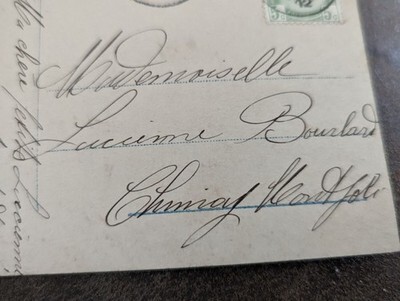 Mademoiselle
Lucienne Bourlard
Chimay
Ma chère petite Lucienne,